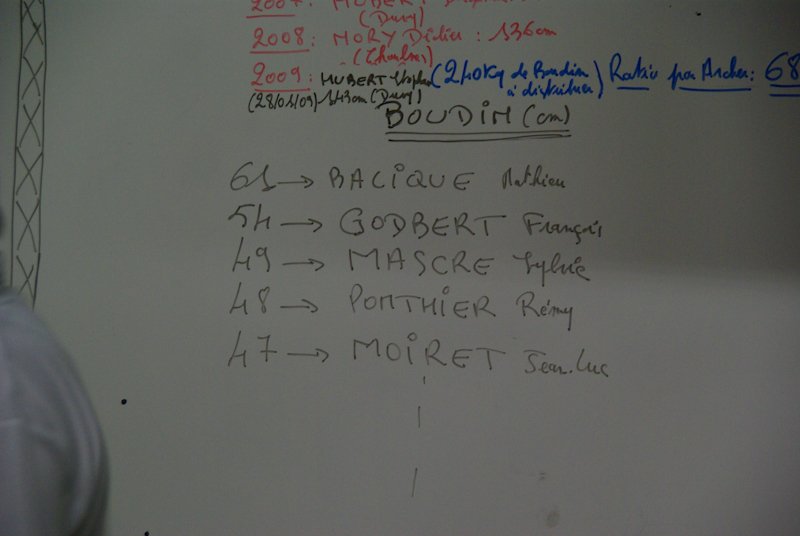 2007: HUBERT
(Dury)
2008: MORY Didier: 136cm
(Chaulnes)
2009: HUBERT Stéphane (240Kg de Boudin à distribuer) Ratio par Archer: 68
(28/01/09) 143cm (Dury)
BOUDIN (cm)
61 → BALIQUE Mathieu
54 → GODBERT François
49 → MASCRE Sylvie
48 → PONTHIER Rémy
47 → MOIRET Jean.Luc